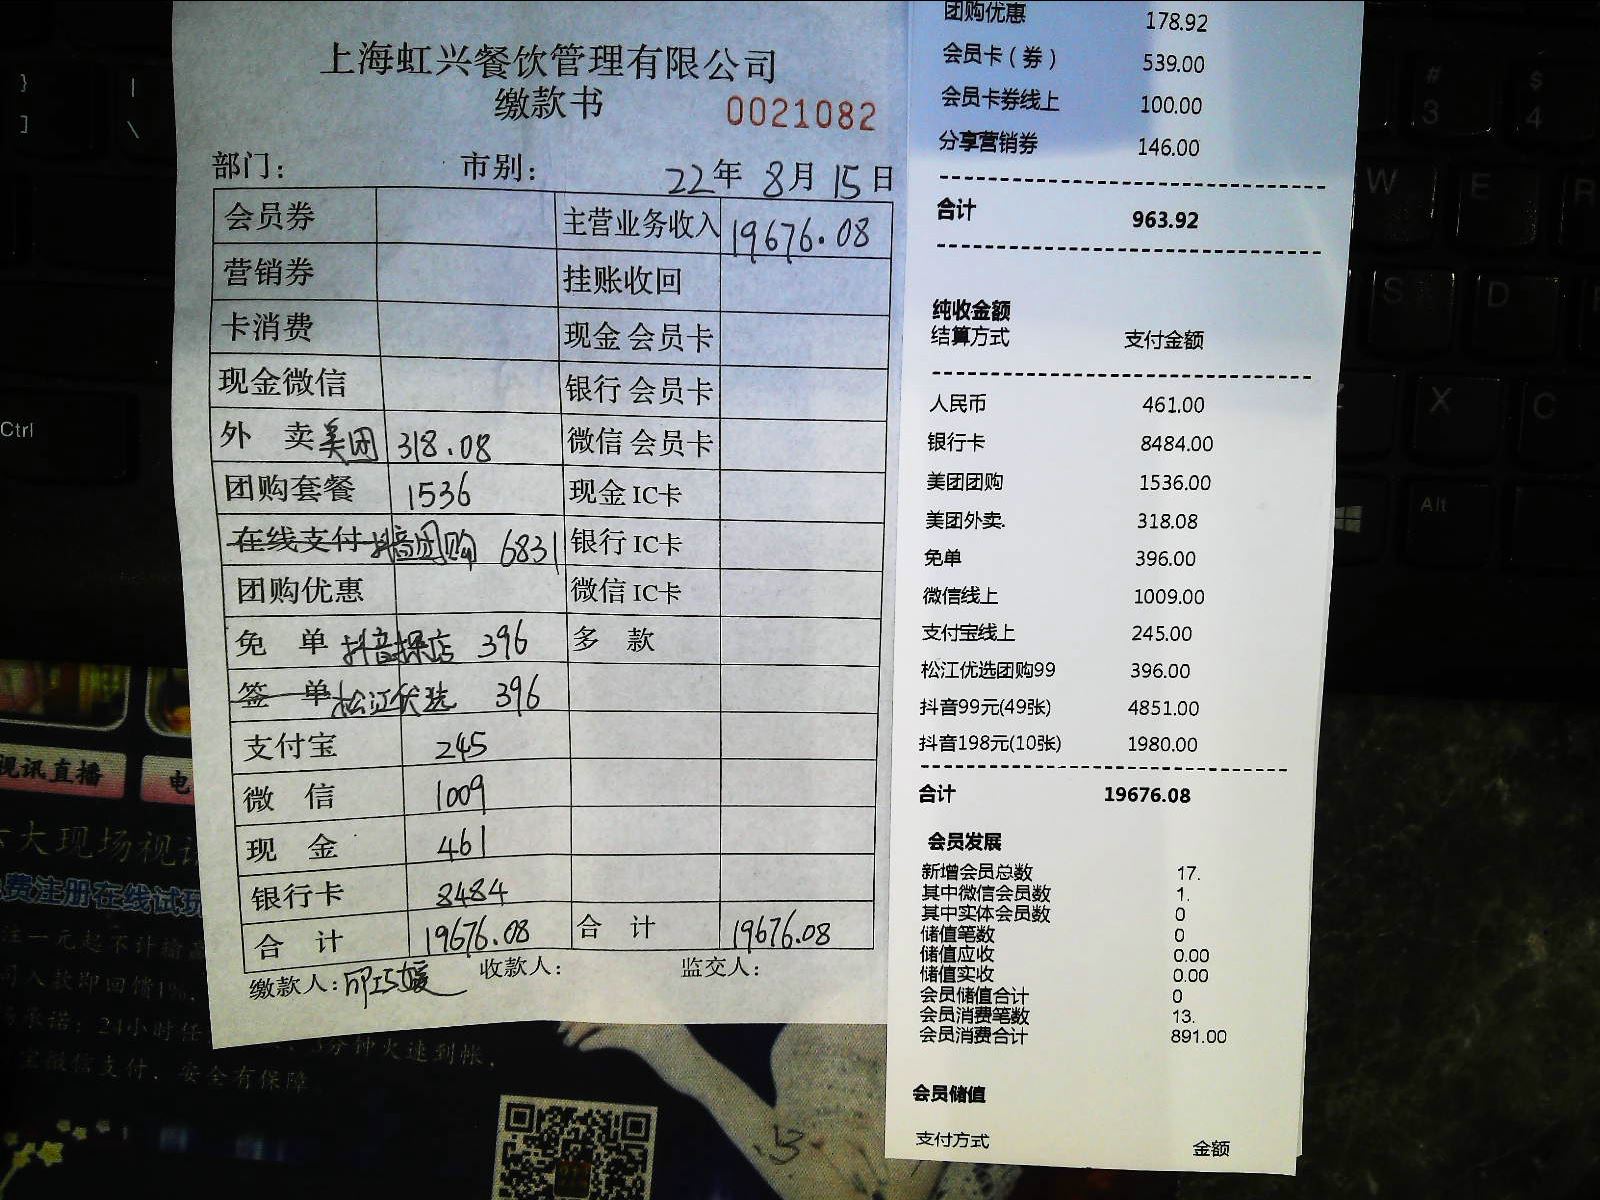 上海虹兴餐饮管理有限公司
缴款书 0021082
部门： 市别： 22年 8月 15日
会员券 主营业务收入 19676.08
营销券 挂账收回
卡消费 现金 会员卡
现金微信 银行 会员卡
外 卖 美团 318.08 微信 会员卡
团购套餐 1536 现金 IC卡
在线支付 抖音团购 6831 银行 IC卡
团购优惠 微信 IC卡
免 单 抖音探店 396 多 款
签 单 松江优选 396
支付宝 245
微 信 1009
现 金 461
银行卡 8484
合 计 19676.08 合 计 19676.08
缴款人： 收款人： 监交人：
团购优惠 178.92
会员卡（券） 539.00
会员卡券线上 100.00
分享营销券 146.00
合计 963.92
纯收金额
结算方式 支付金额
人民币 461.00
银行卡 8484.00
美团团购 1536.00
美团外卖. 318.08
免单 396.00
微信线上 1009.00
支付宝线上 245.00
松江优选团购99 396.00
抖音99元(49张) 4851.00
抖音198元(10张) 1980.00
合计 19676.08
会员发展
新增会员总数 17.
其中微信会员数 1.
其中实体会员数 0
储值笔数 0
储值应收 0.00
储值实收 0.00
会员储值合计 0
会员消费笔数 13.
会员消费合计 891.00
会员储值
支付方式 金额
}
]
|
\
Ctrl
#
3
$
4
W
E
R
S
D
X
C
Alt
视讯直播
电
大现场视
费注册在线试玩
注一元起不计输赢
入款即回馈1%,
承诺：24小时任
分钟火速到帐，
宝微信支付，安全有保障